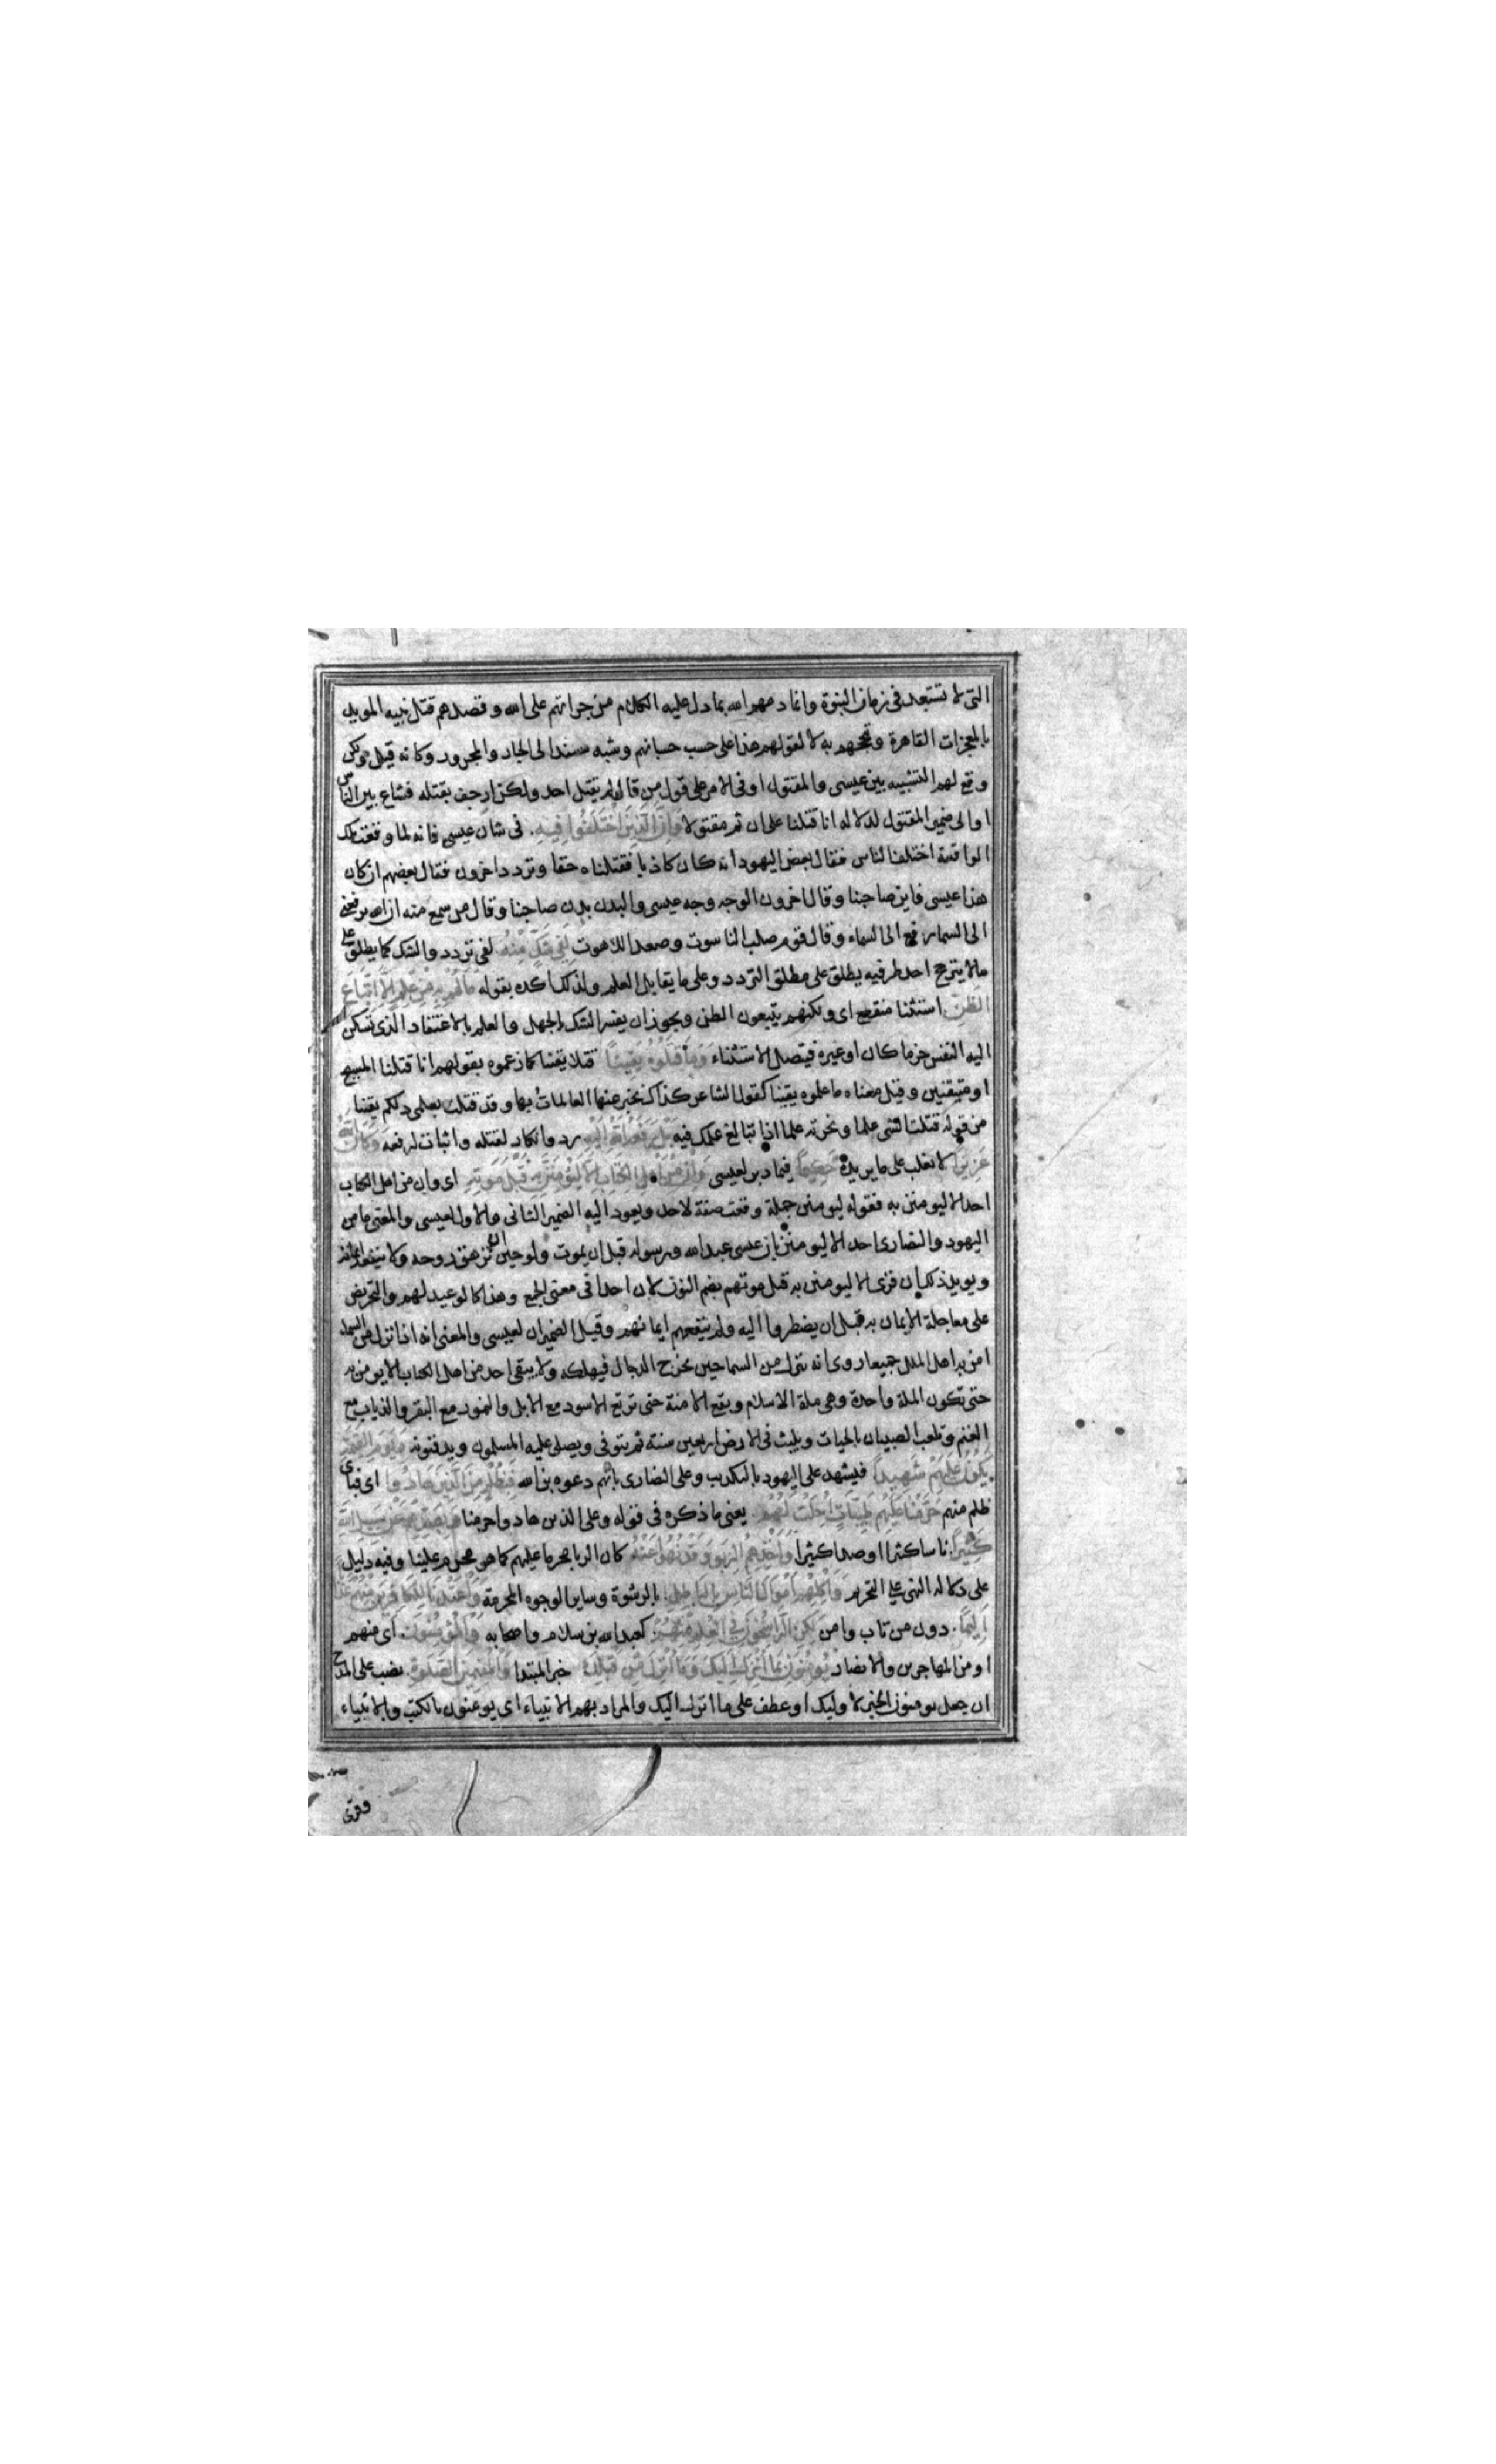 التى لا تستبعد فى زمان النبوة وانما ذمهم الله بما دل عليه الكلام من جراتهم على الله وقصدهم قتل نبيه المويد
بالمعجزات القاهرة وتبجحهم به لا لقولهم هذا على حسب حسبانهم وشبه مسند الى الجار والمجرور وكانه قيل ولكن
وقع لهم التشبيه بين عيسى والمقتول او فى الامر على قول من قال لم يقتل احد ولكن ارجف بقتله فشاع بين الناس
او الى ضمير المقتول لدلالة انا قتلنا على ان ثم مقتولا وَاِنَّ الَّذِينَ اخْتَلَفُوا فِيهِ فى شان عيسى فانه لما وقعت تلك
الواقعة اختلف الناس فقال بعض اليهود انه كان كاذبا فقتلناه حقا وتردد اخرون فقال بعضهم ان كان
هذا عيسى فاين صاحبنا وقال اخرون الوجه وجه عيسى والبدن بدن صاحبنا وقال من سمع منه ان الله يرفعنى
الى السماء رفع الى السماء وقال قوم صلب الناسوت وصعد اللاهوت لَفِى شَكٍّ مِنْهُ لفى تردد والشك كما يطلق على
مالا يترجح احد طرفيه يطلق على مطلق التردد وعلى ما يقابل العلم ولذلك اكده بقوله مَا لَهُمْ بِهِ مِنْ عِلْمٍ اِلَّا اتِّبَاعَ
الظَّنِّ استثنا منقطع اى ولكنهم يتبعون الظن ويجوز ان يفسر الشك بالجهل والعلم بالاعتقاد الذى تسكن
اليه النفس جزما كان او غيره فيتصل الاستثناء وَمَا قَتَلُوهُ يَقِيناً قتلا يقينا كما زعموه بقولهم انا قتلنا المسيح
او متيقنين وقيل معناه ما علموه يقينا كقول الشاعر كذاك تخبر عنها العالمات بها وقد قتلت بعلمى ذلكم يقينا
من قولهم قتلت الشى علما ونحرته علما اذا تبالغ علمك فيه بَلْ رَفَعَهُ اللهُ اِلَيْهِ رد وانكار لقتله واثبات لرفعه وَكَانَ اللهُ
عَزِيزًا لا يغلب على ما يريده حَكِيماً فيما دبر لعيسى وَاِنْ مِنْ اَهْلِ الْكِتَابِ اِلَّا لَيُؤْمِنَنَّ بِهِ قَبْلَ مَوْتِهِ اى وان من اهل الكتاب
احد الا ليومنن به فقوله ليومنن جملة وقعت صفة لاحد ويعود اليه الضمير الثانى والاول لعيسى والمعنى ما من
اليهود والنصارى احد الا ليومنن بان عيسى عبد الله ورسوله قبل ان يموت ولو حين ان تزهق روحه ولا ينفعه ايمانه
ويويد ذلك ان قرى الا ليومنن به قبل موتهم بضم النون لان احدا فى معنى الجمع وهذا كالوعيد لهم والتحريض
على معاجلة الايمان به قبل ان يضطروا اليه ولم ينفعهم ايمانهم وقيل الضميران لعيسى والمعنى انه اذا نزل من السماء
امن به اهل الملل جميعا روى انه ينزل من السما حين يخرج الدجال فيهلكه ولا يبقى احد من اهل الكتاب الا يومن به
حتى تكون الملة واحدة وهى ملة الاسلام ويقع الامنة حتى ترتع الاسود مع الابل والنمور مع البقر والذياب مع
الغنم وتلعب الصبيان بالحيات ويلبث فى الارض اربعين سنة ثم يتوفى ويصلى عليه المسلمون ويدفنونه وَيَوْمَ الْقِيمَةِ
يَكُونُ عَلَيْهِمْ شَهِيداً فيشهد على اليهود بالتكذيب وعلى النصارى بانهم دعوه بن الله فَبِظُلْمٍ مِنَ الَّذِينَ هَادُوا اى فباى
ظلم منهم حَرَّمْنَا عَلَيْهِمْ طَيِّبَاتٍ اُحِلَّتْ لَهُمْ يعنى ما ذكره فى قوله وعلى الذين هادوا حرمنا وَبِصَدِّهِمْ عَنْ سَبِيلِ اللهِ
كَثِيراً ناسا كثيرا او صدا كثيرا وَاَخْذِهِمُ الرِّبَوا وَقَدْ نُهُوا عَنْهُ كان الربا محرما عليهم كما هو محرم علينا وفيه دليل
على دلالة النهى على التحريم وَاَكْلِهِمْ اَمْوَالَ النَّاسِ بِالْبَاطِلِ بالرشوة وساير الوجوه المحرمة وَاَعْتَدْنَا لِلْكَافِرِينَ مِنْهُمْ عَذَابًا
اَلِيماً دون من تاب وامن لَكِنِ الرَّاسِخُونَ فِى الْعِلْمِ مِنْهُمْ كعبد الله بن سلام واصحابه وَالْمُؤْمِنُونَ اى منهم
او من المهاجرين والانصار يُؤْمِنُونَ بِمَا اُنْزِلَ اِلَيْكَ وَمَا اُنْزِلَ مِنْ قَبْلِكَ خبر المبتدا وَالْمُقِيمِينَ الصَّلَوةَ نصب على المدح
ان جعل يومنون الخبر لاوليك او عطف على ما انزل اليك والمراد بهم الانبياء اى يومنون بالكتب والانبياء
وقرى